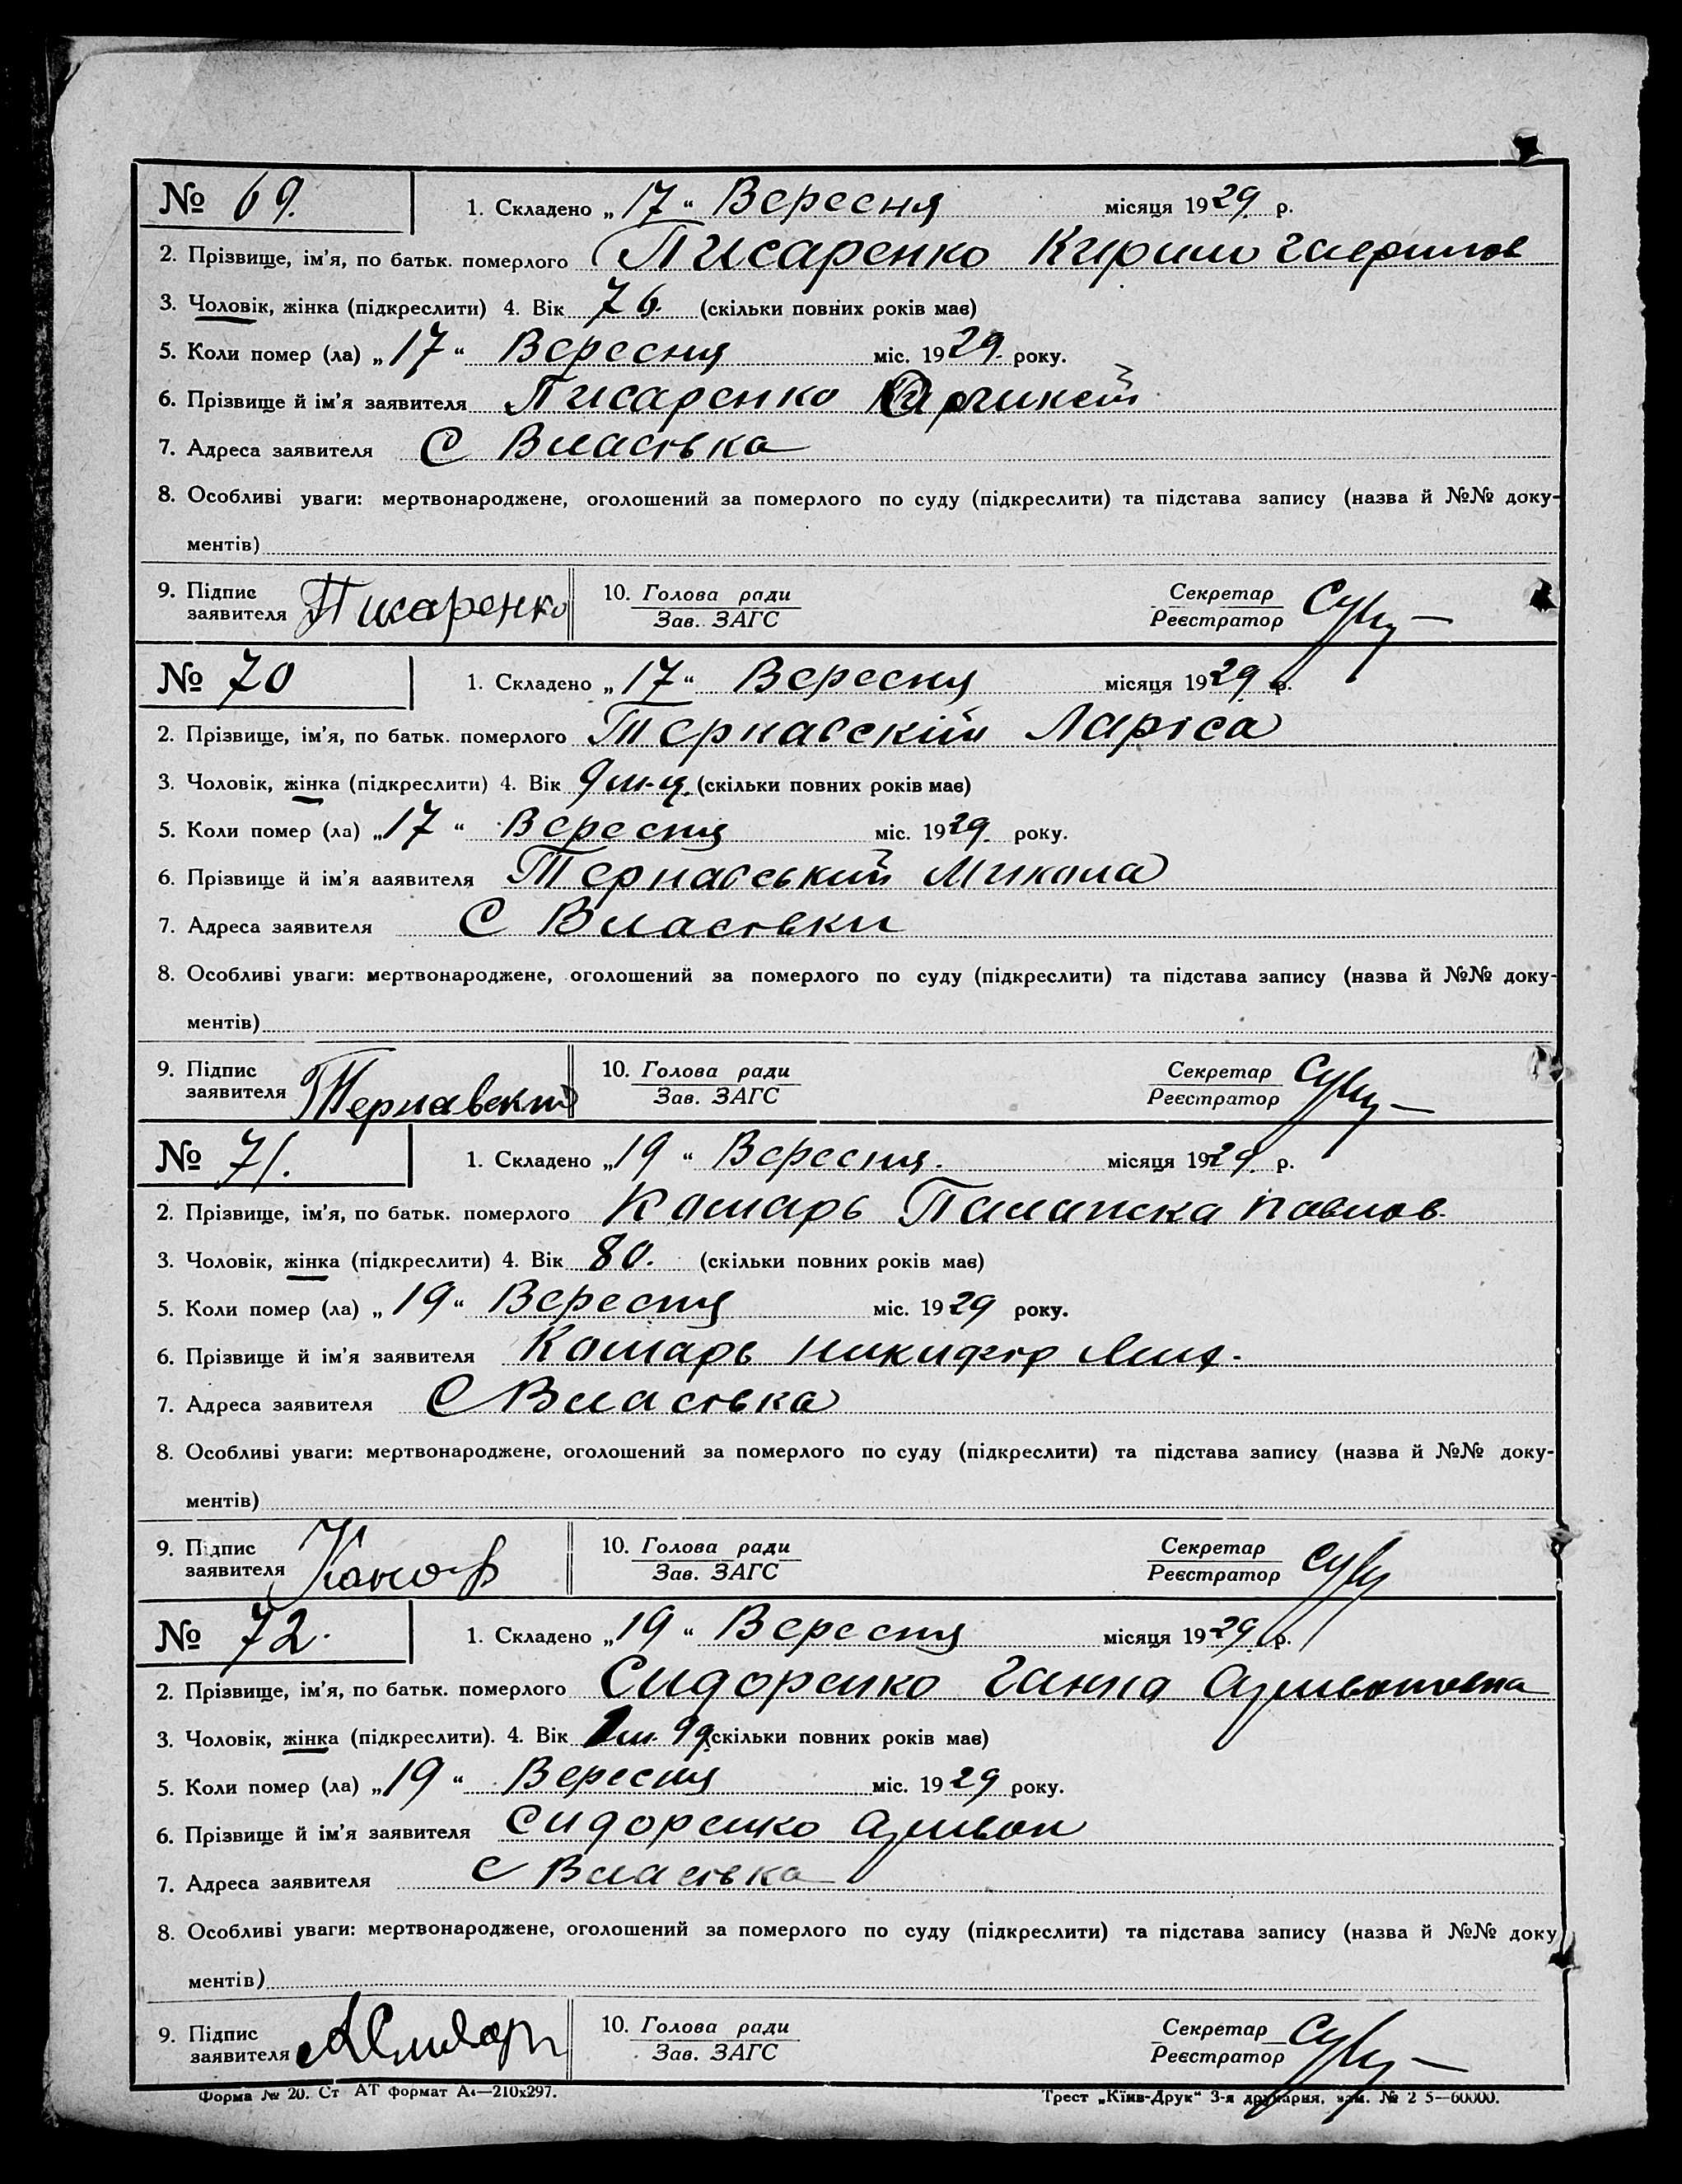 № 69. 1. Складено „17“ Вересня місяця 1929 р.
2. Прізвище, ім'я, по батьк. померлого Писаренко Кирило Гаврилов
3. Чоловік, жінка (підкреслити) 4. Вік 76. (скільки повних років має)
5. Коли помер (ла) „17“ Вересня міс. 1929. року.
6. Прізвище й ім'я заявителя Писаренко
7. Адреса заявителя С Власовка
8. Особливі уваги: мертвонароджене, оголошений за померлого по суду (підкреслити) та підстава запису (назва й №№ доку-
ментів)
9. Підпис заявителя Писаренко 10. Голова ради Зав. ЗАГС Секретар Реєстратор
№ 70 1. Складено „17“ Вересня місяця 1929 р.
2. Прізвище, ім'я, по батьк. померлого Тернавскій Ларіса
3. Чоловік, жінка (підкреслити) 4. Вік 9 м-ц. (скільки повних років має)
5. Коли помер (ла) „17“ Вересня міс. 1929. року.
6. Прізвище й ім'я заявителя Тернавський Микола
7. Адреса заявителя С Власовки
8. Особливі уваги: мертвонароджене, оголошений за померлого по суду (підкреслити) та підстава запису (назва й №№ доку-
ментів)
9. Підпис заявителя Тернавский 10. Голова ради Зав. ЗАГС Секретар Реєстратор
№ 71. 1. Складено „19“ Вересня. місяця 1929. р.
2. Прізвище, ім'я, по батьк. померлого Комарь Палажка Павлов.
3. Чоловік, жінка (підкреслити) 4. Вік 80. (скільки повних років має)
5. Коли помер (ла) „19“ Вересня міс. 1929 року.
6. Прізвище й ім'я заявителя Комарь Никифор
7. Адреса заявителя С Власовка
8. Особливі уваги: мертвонароджене, оголошений за померлого по суду (підкреслити) та підстава запису (назва й №№ доку-
ментів)
9. Підпис заявителя Комар 10. Голова ради Зав. ЗАГС Секретар Реєстратор
№ 72. 1. Складено „19“ Вересня місяця 1929 р.
2. Прізвище, ім'я, по батьк. померлого Сидоренко Ганна
3. Чоловік, жінка (підкреслити). 4. Вік (скільки повних років має)
5. Коли помер (ла) „19“ Вересня міс. 1929 року.
6. Прізвище й ім'я заявителя Сидоренко
7. Адреса заявителя С Власовка
8. Особливі уваги: мертвонароджене, оголошений за померлого по суду (підкреслити) та підстава запису (назва й №№ доку
ментів)
9. Підпис заявителя 10. Голова ради Зав. ЗАГС Секретар Реєстратор
Форма № 20. Ст АТ формат А4—210х297. Трест „Київ-Друк“ 3-я друкарня, зам. № 2 5—60000.